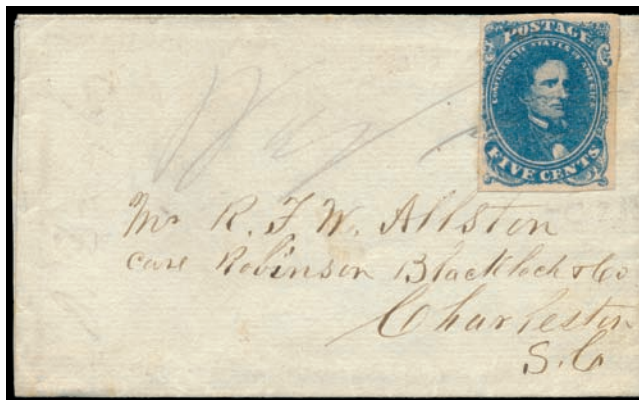 POSTAGE
CONFEDERATE STATES OF AMERICA
FIVE CENTS
Mr R. F. W. Allston
care Robinson Blacklock & Co
Charleston
S. C